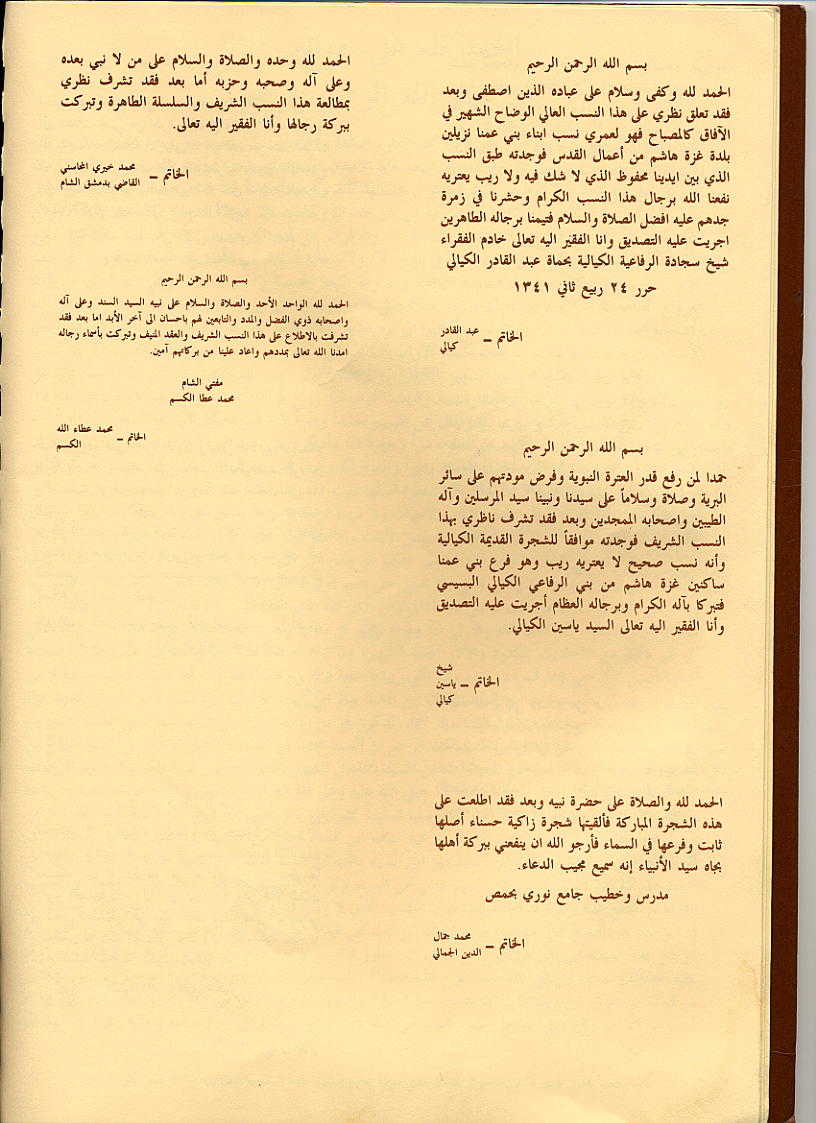 بسم الله الرحمن الرحيم
الحمد لله وكفى وسلام على عباده الذين اصطفى وبعد
فقد تعلق نظري على هذا النسب العالي الوضاح الشهير في
الآفاق كالمصباح فهو لعمري نسب ابناء بني عمنا نزيلين
بلدة غزة هاشم من أعمال القدس فوجدته طبق النسب
الذي بين ايدينا محفوظ الذي لا شك فيه ولا ريب يعتريه
نفعنا الله برجال هذا النسب الكرام وحشرنا في زمرة
جدهم عليه افضل الصلاة والسلام فتيمنا برجاله الطاهرين
اجريت عليه التصديق وانا الفقير اليه تعالى خادم الفقراء
شيخ سجادة الرفاعية الكيالية بحماة عبد القادر الكيالي
حرر ٢٤ ربيع ثاني ١٣٤١
الخاتم – عبد القادر
كيالي
بسم الله الرحمن الرحيم
حمدا لمن رفع قدر العترة النبوية وفرض مودتهم على سائر
البرية وصلاة وسلاماً على سيدنا ونبينا سيد المرسلين وآله
الطيبين واصحابه الممجدين وبعد فقد تشرف ناظري بهذا
النسب الشريف فوجدته موافقاً للشجرة القديمة الكيالية
وأنه نسب صحيح لا يعتريه ريب وهو فرع بني عمنا
ساكنين غزة هاشم من بني الرفاعي الكيالي البسيسي
فتبركا بآله الكرام وبرجاله العظام أجريت عليه التصديق
وأنا الفقير اليه تعالى السيد ياسين الكيالي.
شيخ
الخاتم – ياسين
كيالي
الحمد لله والصلاة على حضرة نبيه وبعد فقد اطلعت على
هذه الشجرة المباركة فألقيتها شجرة زاكية حسناء أصلها
ثابت وفرعها في السماء فأرجو الله ان ينفعني ببركة أهلها
بجاه سيد الأنبياء إنه سميع مجيب الدعاء.
مدرس وخطيب جامع نوري بحمص
الخاتم – محمد جمال
الدين الجمالي
الحمد لله وحده والصلاة والسلام على من لا نبي بعده
وعلى آله وصحبه وحزبه أما بعد فقد تشرف نظري
بمطالعة هذا النسب الشريف والسلسلة الطاهرة وتبركت
ببركة رجالها وأنا الفقير اليه تعالى.
الخاتم – محمد خيري المحاسني
القاضي بدمشق الشام
بسم الله الرحمن الرحيم
الحمد لله الواحد الأحد والصلاة والسلام على نبيه السيد السند وعلى آله
واصحابه ذوي الفضل والمدد والتابعين لهم باحسان الى آخر الأبد اما بعد فقد
تشرفت بالاطلاع على هذا النسب الشريف والعقد المنيف وتبركت بأسماء رجاله
امدنا الله تعالى بمددهم واعاد علينا من بركاتهم آمين.
مفتي الشام
محمد عطا الكسم
الخاتم – محمد عطاء الله
الكسم